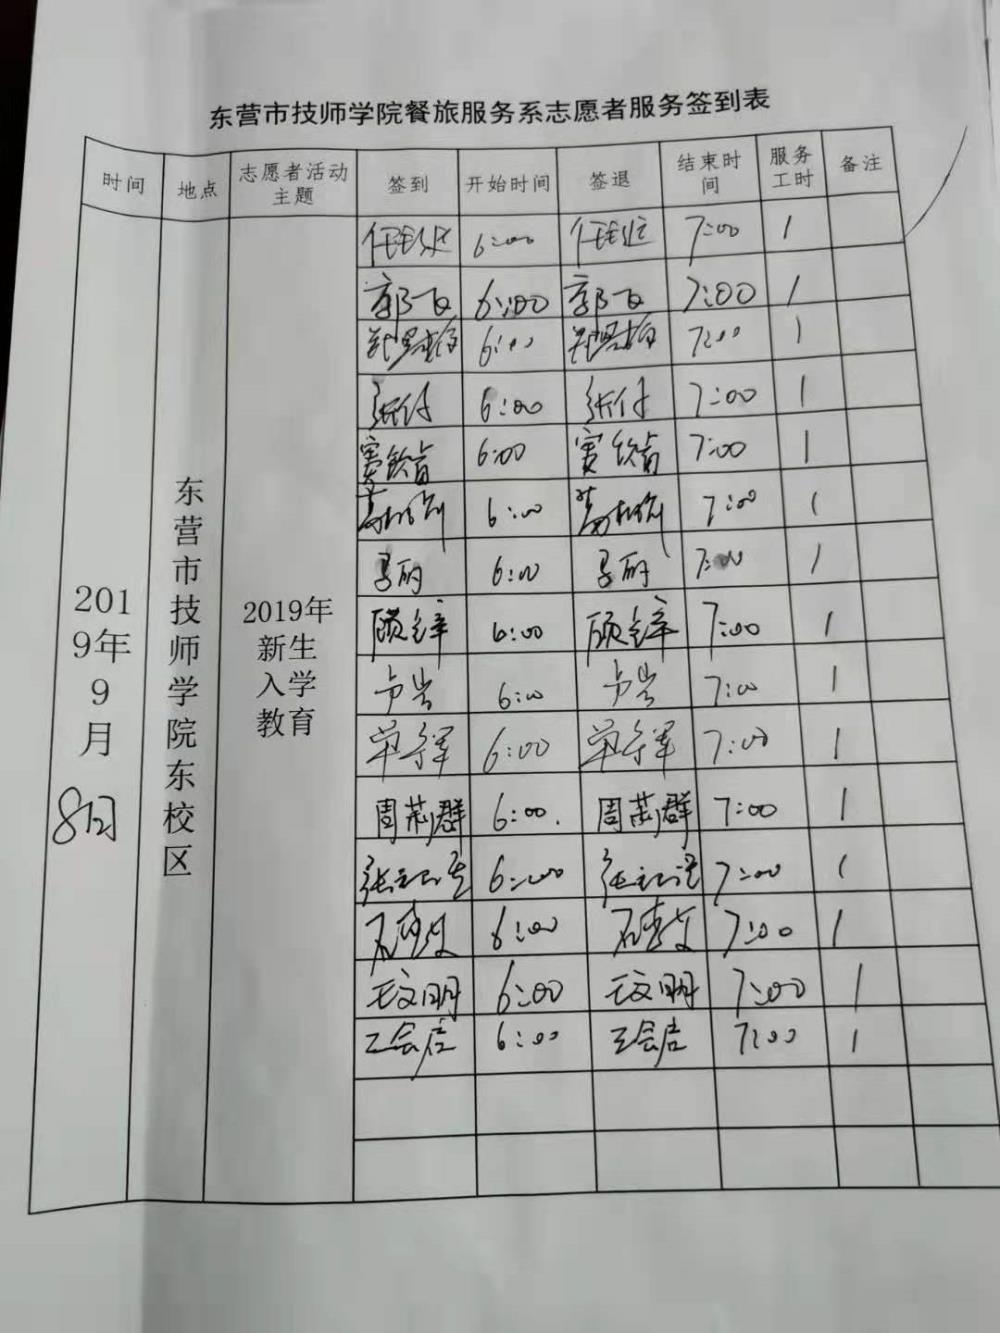 东营市技师学院餐旅服务系志愿者服务签到表
时间 地点 志愿者活动主题 签到 开始时间 签退 结束时间 服务工时 备注
2019年9月8日
东营市技师学院东校区
2019年新生入学教育
6:00 7:00 1
郭飞 6:00 郭飞 7:00 1
6:00 7:00 1
张付 6:00 张付 7:00 1
6:00 7:00 1
6:00 7:00 1
马丽 6:00 马丽 7:00 1
顾锌 6:00 顾锌 7:00 1
6:00 7:00 1
6:00 7:00 1
周莉群 6:00. 周莉群 7:00 1
6:00 7:00 1
6:00 7:00 1
王文明 6:00 王文明 7:00 1
王会启 6:00 王会启 7:00 1